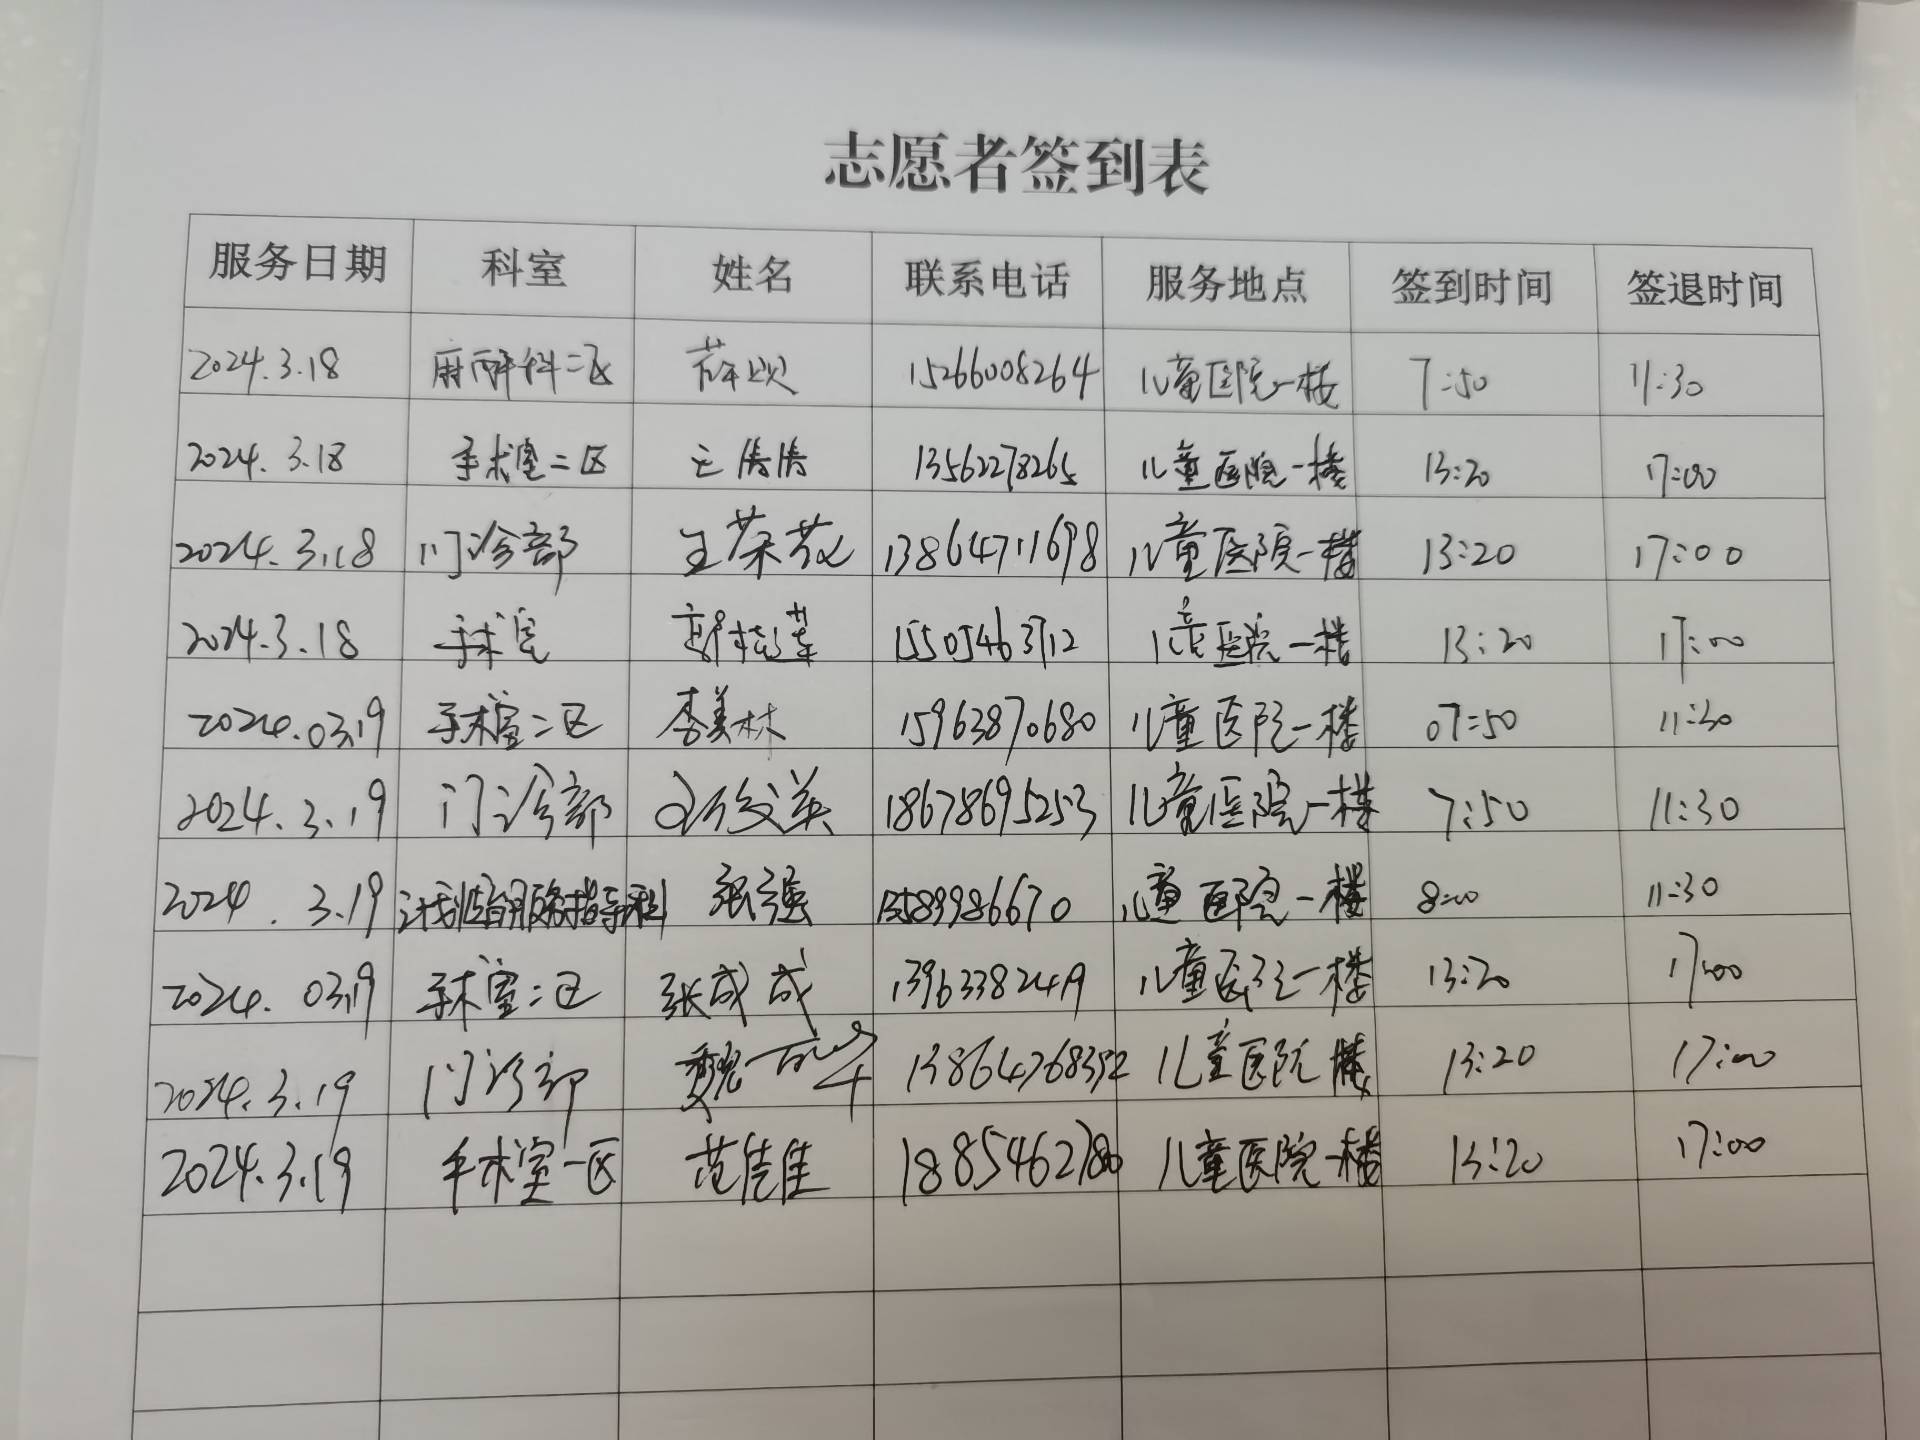 志愿者签到表
服务日期 科室 姓名 联系电话 服务地点 签到时间 签退时间
2024.3.18 麻醉科二区 15266008264 儿童医院一楼 7:50 11:30
2024.3.18 手术室二区 王倩倩 13562278265 儿童医院一楼 13:20 17:00
2024.3.18 门诊部 王荣 13864711698 儿童医院一楼 13:20 17:00
2024.3.18 手术室 郭桂莲 15505463712 儿童医院一楼 13:20 17:00
2024.03.19 手术室二区 李美林 15963870680 儿童医院一楼 07:50 11:30
2024.3.19 门诊部 18678695253 儿童医院一楼 7:50 11:30
2024.3.19 计划生育服务指导科 张强 13589986670 儿童医院一楼 8:00 11:30
2024.03.19 手术室二区 张成成 13963382419 儿童医院一楼 13:20 17:00
2024.3.19 门诊部 魏 13864768392 儿童医院一楼 13:20 17:00
2024.3.19 手术室一区 范佳佳 18854627800 儿童医院一楼 13:20 17:00